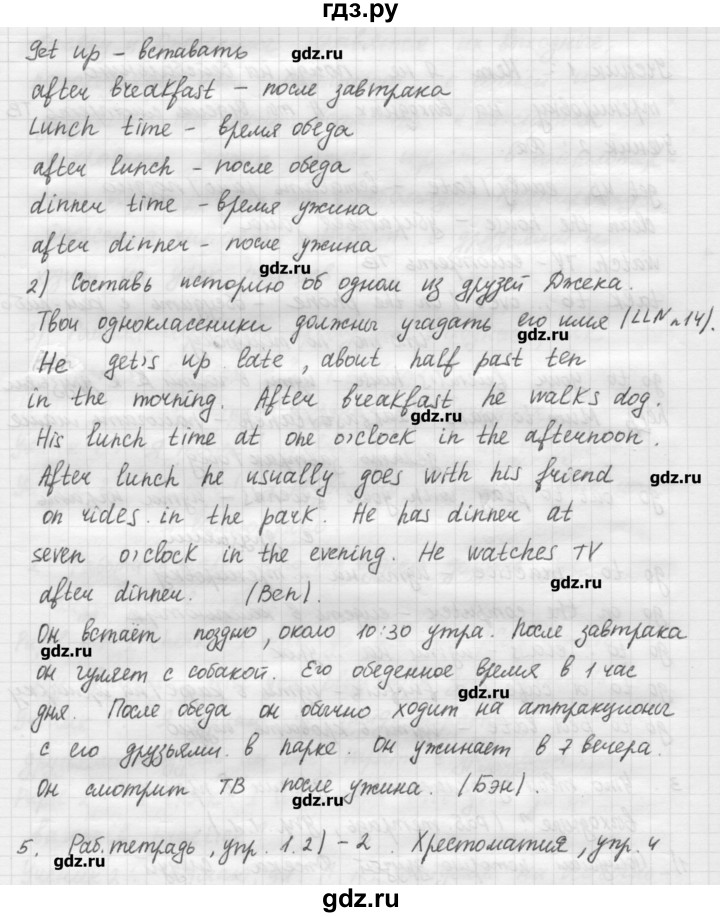 гдз.ру
get up – вставать
gdz.ru
after breakfast – после завтрака
Lunch time – время обеда
after lunch – после обеда
dinner time – время ужина
after dinner – после ужина
gdz.ru
2) Составь историю об одном из друзей Джека.
Твои однокласеники должны угадать его имя (LLN n14).
gdz.ru
He get's up late, about half past ten
in the morning. After breakfast he walks dog.
gdz.ru
His lunch time at one o'clock in the afternoon.
After lunch he usually goes with his friend
gdz.ru
on rides in the park. He has dinner at
seven o'clock in the evening. He watches TV
gdz.ru
after dinner. (Ben).
Он встаёт поздно, около 10:30 утра. После завтрака
gdz.ru
он гуляет с собакой. Его обеденное время в 1 час
gdz.ru
дня. После обеда он обычно ходит на аттракционы
с его друзьями в парке. Он ужинает в 7 вечера.
Он смотрит ТВ после ужина. (Бэн).
gdz.ru
5. Раб.тетрадь, упр. 1.2) – 2. Хрестоматия, упр. 4
gdz.ru
gdz.ru